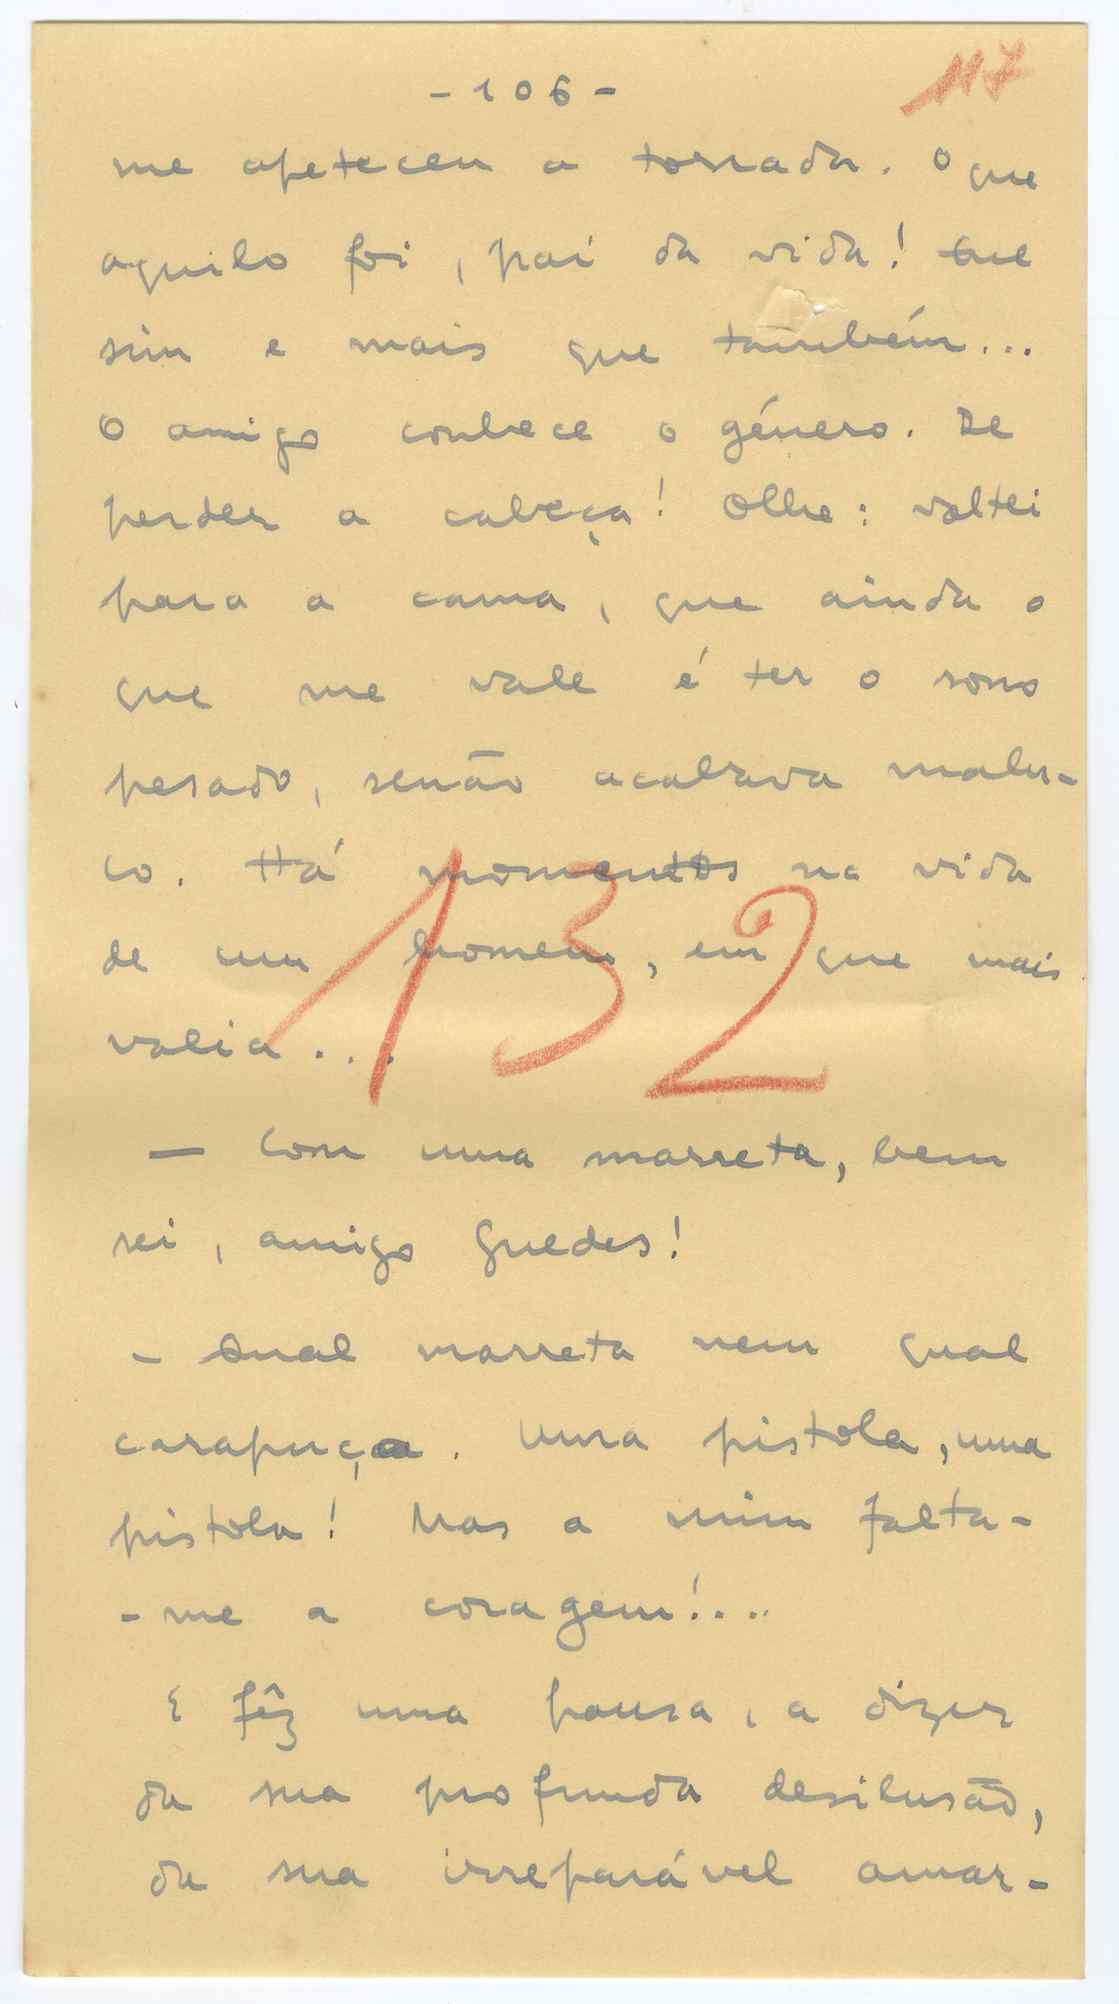 - 106 -
117
me apeteceu a torrada. O que
aquilo foi, pai da vida! Que
sim e mais que também...
O amigo conhece o género. De
perder a cabeça! Olhe: voltei
para a cama, que ainda o
que me vale é ter o sono
pesado, senão acabava malu-
co. Há momentos na vida
de um homem, em que mais
valia...
132
— Com uma marreta, bem
sei, amigo Guedes!
- Qual marreta nem qual
carapuça. Uma pistola, uma
pistola! Mas a mim falta-
-me a coragem!...
E fêz uma pausa, a dizer
da sua profunda desilusão,
da sua irreparável amar-